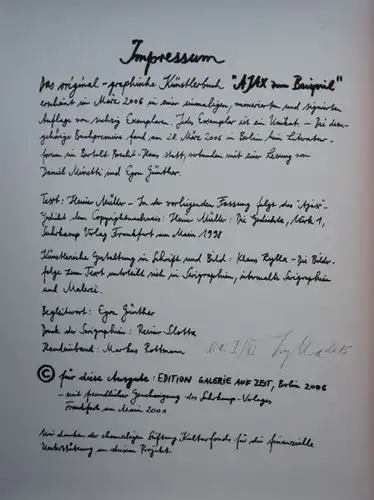 Impressum
Das original-graphische Künstlerbuch "AJAX zum Beispiel"
erscheint im März 2006 in einer einmaligen, numerierten und signierten
Auflage von sechzig Exemplaren. Jedes Exemplar ist ein Unikat – Die dazu-
gehörige Buchpremiere fand am 28. März 2006 in Berlin, im Literatur-
forum im Bertolt Brecht-Haus statt, verbunden mit einer Lesung von
Daniel Minetti und Egon Günther.
Text: Heiner Müller – In der vorliegenden Fassung folgt das "Ajax"-
Gedicht dem Copyrightnachweis: Heiner Müller: Die Gedichte, Werk 1,
Suhrkamp Verlag Frankfurt am Main 1998
Künstlerische Gestaltung in Schrift und Bild: Klaus Zylla – Die Bilder-
folge zum Text unterteilt sich in Serigraphien, übermalte Serigraphien
und Malerei.
Begleitwort: Egon Günther
Druck der Serigraphien: Reiner Slotta
Handeinband: Markus Rottmann
© für diese Ausgabe: EDITION GALERIE AUF ZEIT, Berlin 2006
– mit freundlicher Genehmigung des Suhrkamp-Verlages
Frankfurt am Main 2001
Wir danken der ehemaligen Stiftung Kulturfonds für die finanzielle
Unterstützung an diesem Projekt.